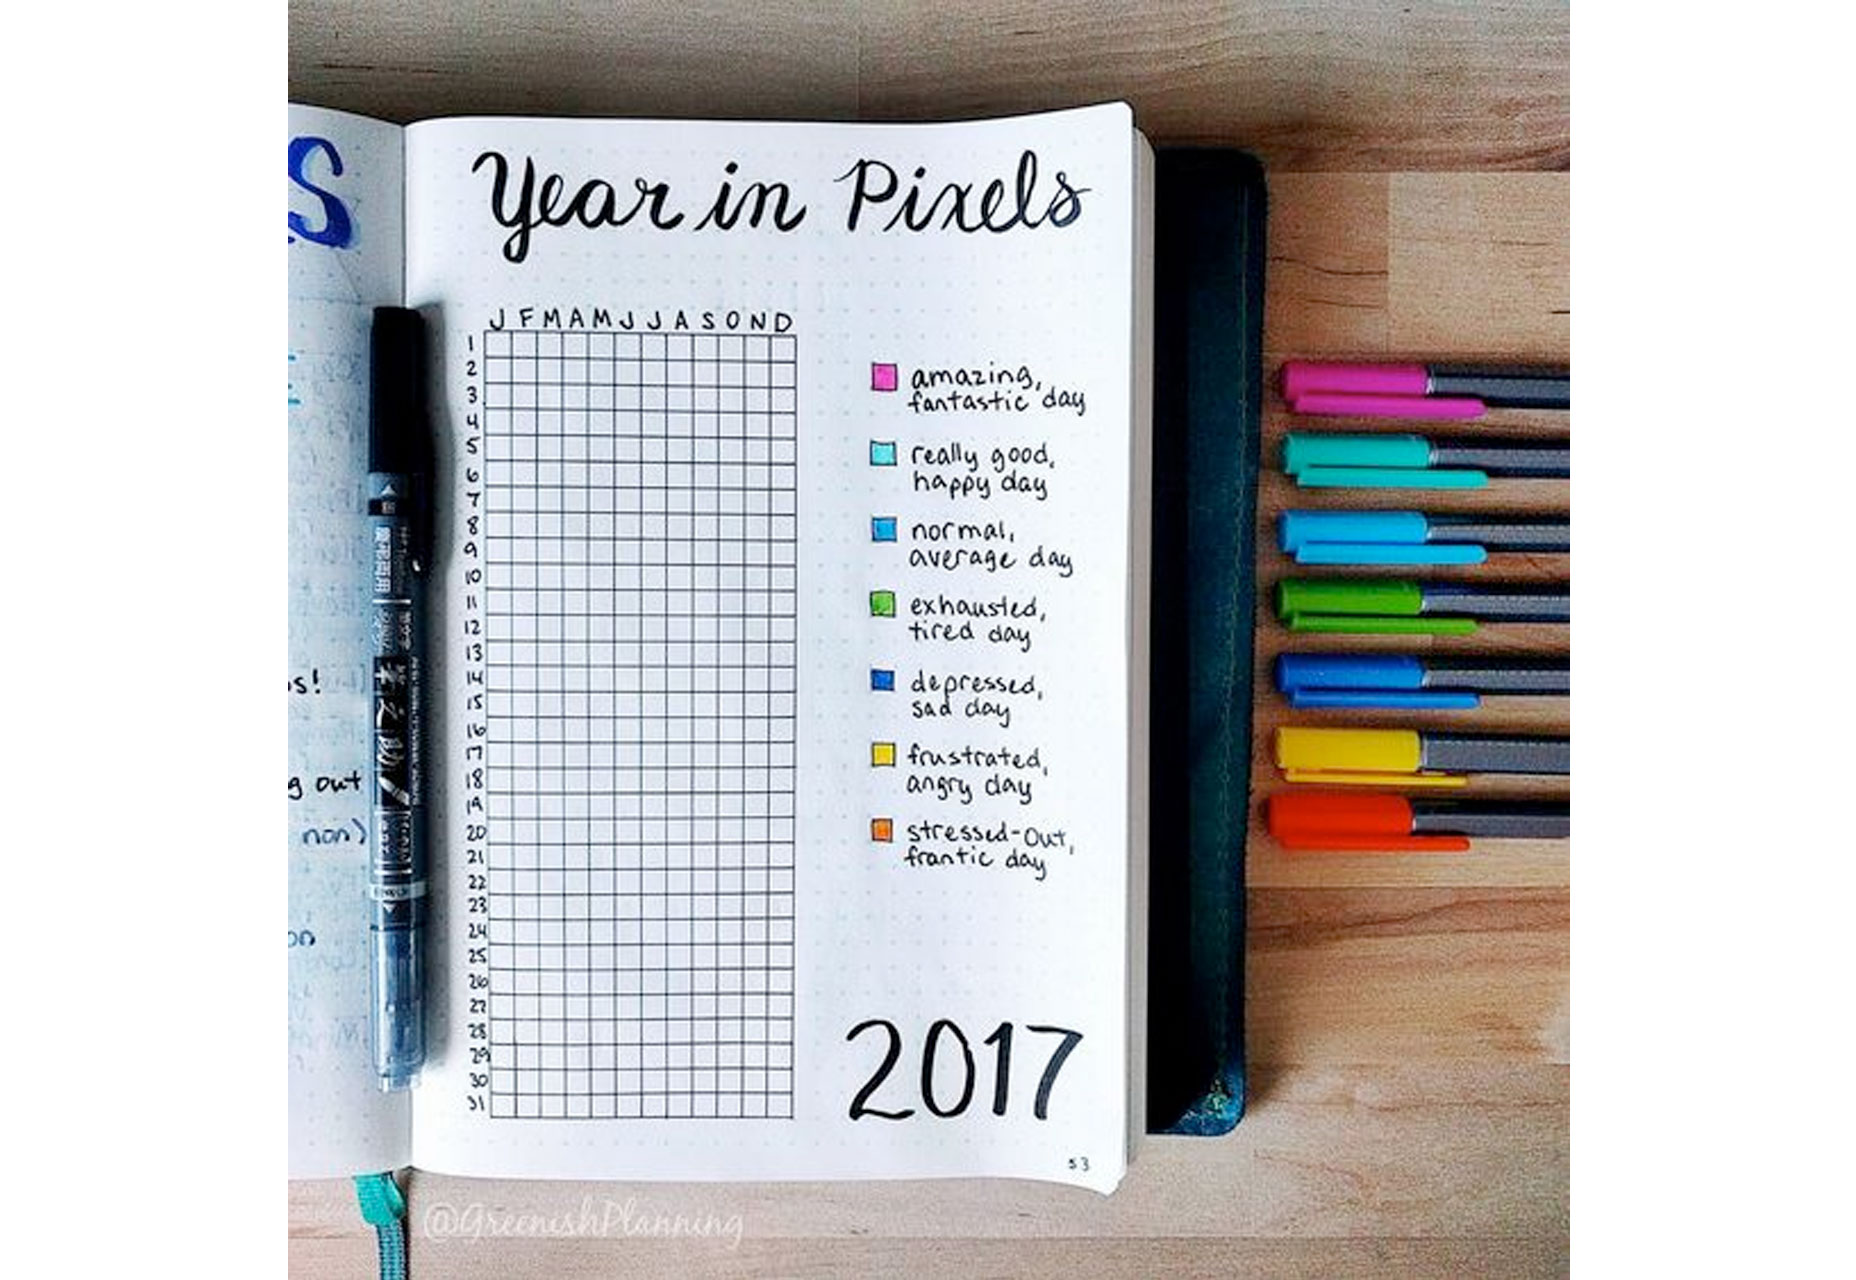 S
s!
g out
non)
on
Year in Pixels
J F M A M J J A S O N D
1
2
3
4
5
6
7
8
9
10
11
12
13
14
15
16
17
18
19
20
21
22
23
24
25
26
27
28
29
30
31
amazing,
fantastic day
really good,
happy day
normal,
average day
exhausted,
tired day
depressed,
sad day
frustrated,
angry day
stressed-out,
frantic day
2017
53
@GreenishPlanning